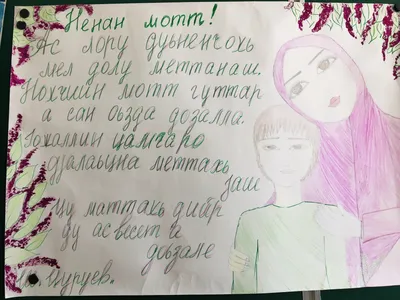 Ненан мотт!
Ас лору дуьненчохь
мел долу меттанаш.
Нохчийн мотт гуттар
а сан оьзда дозалла.
цамгаро
дӏалаьцна меттахь
Цу маттахь дийр
ду ас весет а
доьзале
Цуруев.